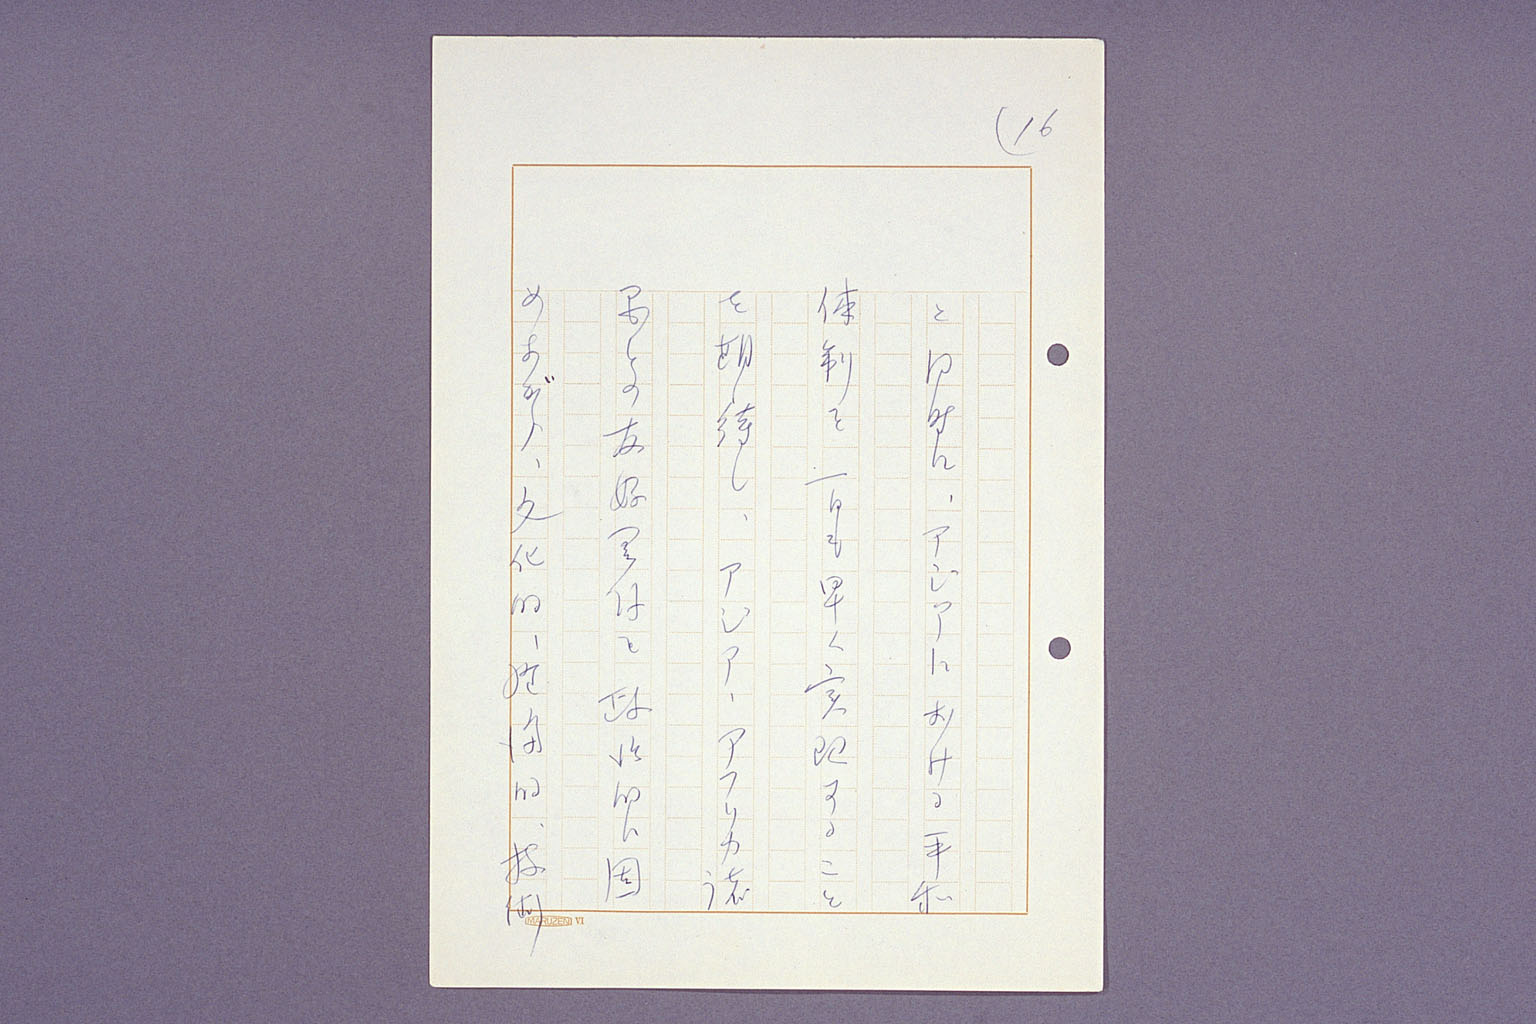 (16
と同時に、アジアにおける平和
体制を一日も早く実現すること
を期待し、アジア、アフリカ諸
国との友好関係を政治的に固
めながら、文化的、経済的、技術
MARUZEN VI